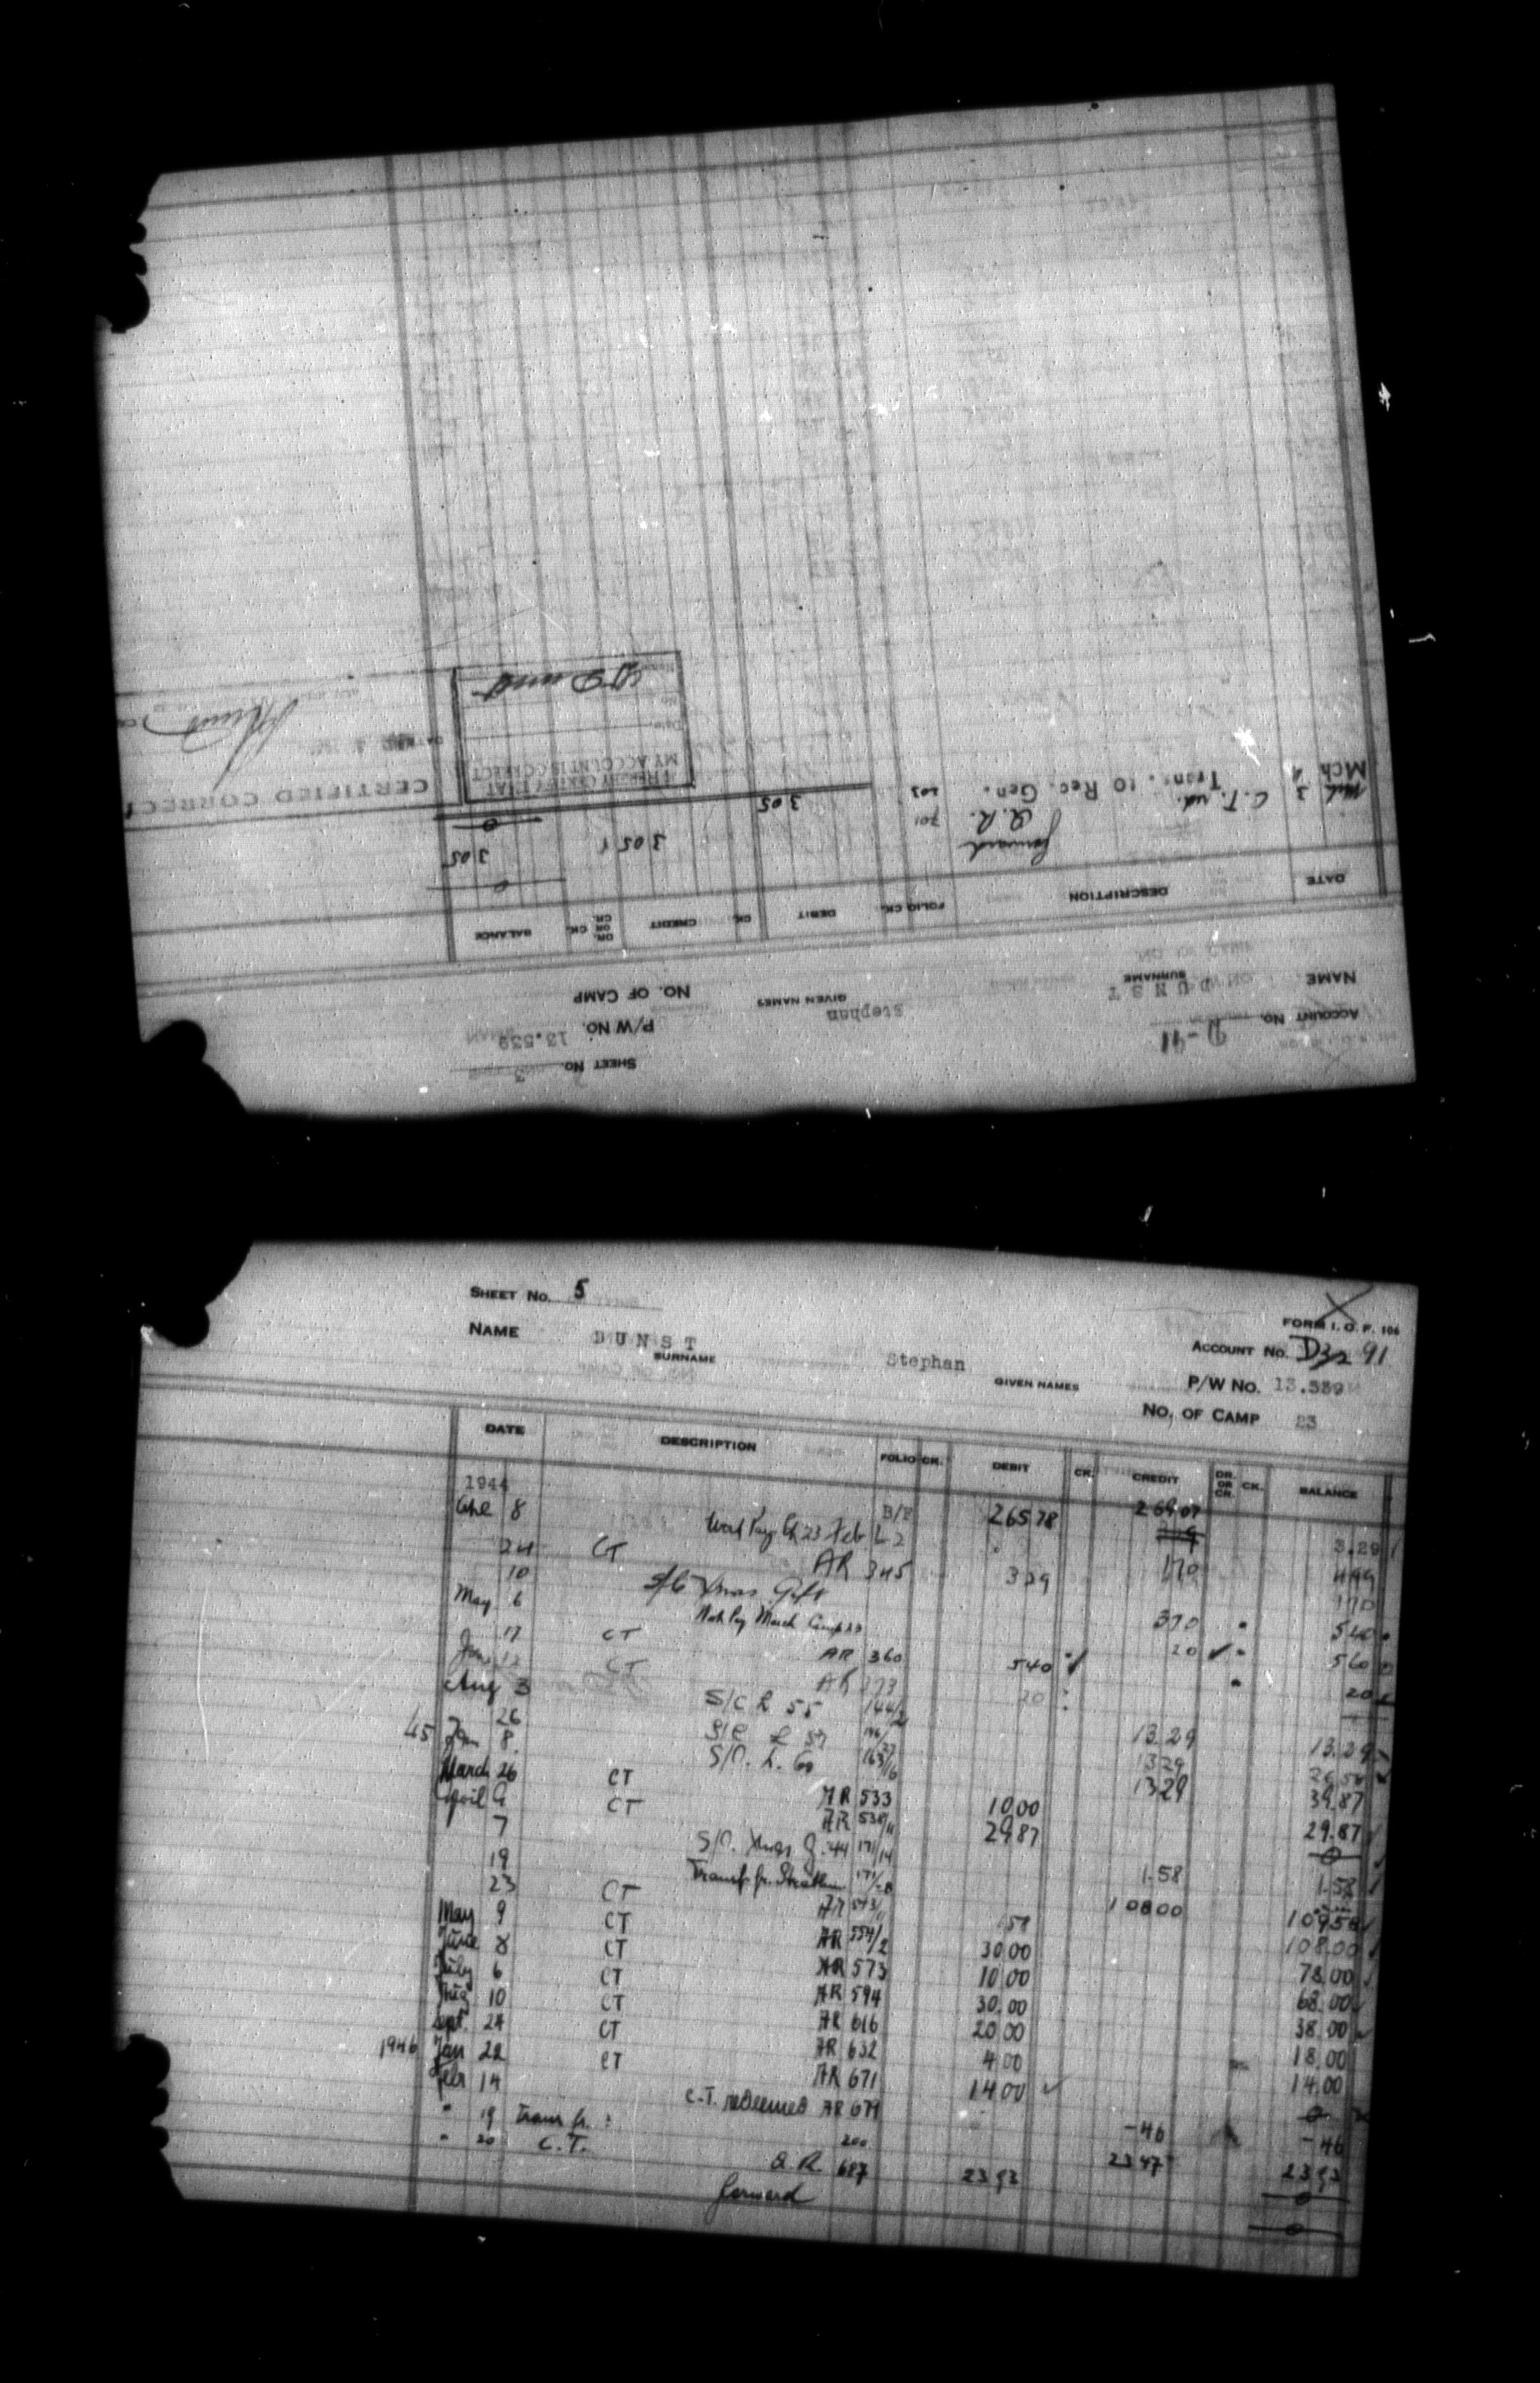 SHEET No. 3
ACCOUNT No. D-91
P/W No. 13.539
NAME DUNST Stephan
SURNAME GIVEN NAMES
NO. OF CAMP
DATE DESCRIPTION FOLIO CK. DEBIT CK. CREDIT DR. OR CR. CK. BALANCE
forward 0
3 C.T. rd. A.R. 701 3 05 3 05
Mch 4 Trans. to Rec. Gen. 203 3 05 0
CERTIFIED CORRECT
I HEREBY CERTIFY THAT
MY ACCOUNT IS CORRECT
Date
No.
Name Dunst
SHEET No. 5
FORM I.O.F. 106
NAME DUNST Stephan
SURNAME GIVEN NAMES
ACCOUNT No. D 91
P/W No. 13.539
No. OF CAMP 23
DATE DESCRIPTION FOLIO CK. DEBIT CK. CREDIT DR. OR CR. CK. BALANCE
1944 B/F 265 78 269 07 3.29
8 Work Pay 23 Feb L 2 1 70 4 99
24 CT AR 345 3 29 1 70
10 Xmas Gift 3 70 5 40
May 6 Work Pay March Camp 23 20 5 60
17 CT AR 360 5 40 20
12 CT AR 373 20
Aug 3 S/C L 55 144/21 13.29 13.29
26 S/C L 57 13 29 26 58
45 Jan 8. S/O. L. 60 163/16 13 29 39.87
March 26 CT AR 533 10 00 29.87
April 9 CT AR 538/11 29 87 0
7 S/O. Xmas G. 44 171/14 1.58 1.58
19 Transf. fr. 171/28 108 00 109 58
23 CT AR 543/11 1 58 108.00
May 9 CT AR 554/2 30 00 78.00
June 8 CT AR 573 10 00 68.00
July 6 CT AR 594 30.00 38.00
Aug 10 CT AR 616 20 00 18.00
Sept. 24 CT AR 632 4 00 14.00
1946 Jan 22 CT AR 671 14 00 0
Febr 14 C.T. redeemed AR 679 -46 -46
" 19 Trans fr. : 200 23 47 23 93
" 20 C.T. A.R. 687 23 93 0
forward 0